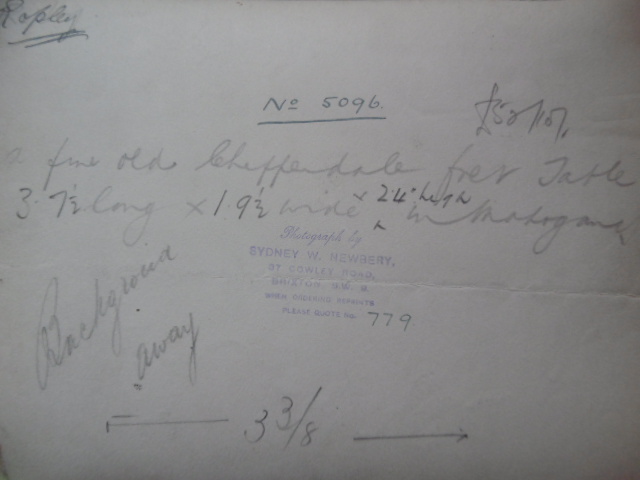 Ropley
No 5096.
a fine old Cheppendale fret Table
3.7½ long × 1.9½ wide × 2.4" high in Mahogany
Photograph by
SYDNEY W. NEWBERY,
COWLEY ROAD,
BRIXTON S.W. 9
WHEN ORDERING REPRINTS
PLEASE QUOTE No. 779
Background
away
3 3/8